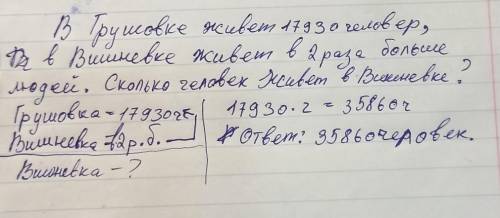 В Грушовке живет 17930 человер,
в Вишневке живет в 2 раза больше
людей. Сколько человек живет в Вишневке?
Грушовка = 17930 ч
Вишневка - в 2 р. б.
Вишневка - ?
17930 · 2 = 35860 ч
Ответ: 35860 человек.